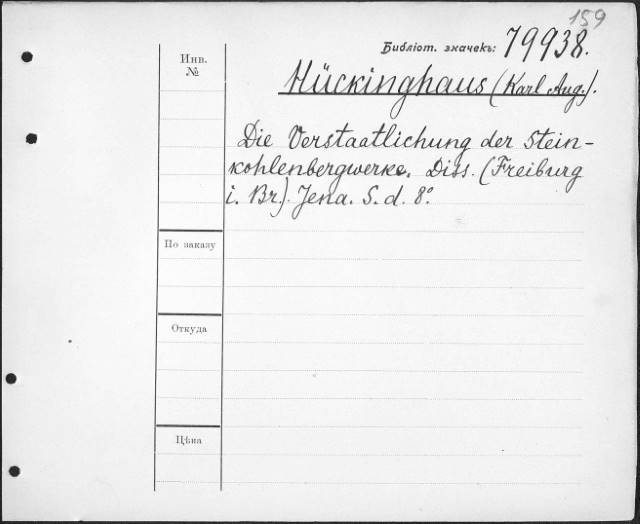 159
Библіот. значекъ: 79938.
Инв.
№
Hückinghaus (Karl Aug.).
Die Verstaatlichung der Stein-
kohlenbergwerke. Diss. (Freiburg
i. Br.). Jena. S. d. 8°.
По заказу
Откуда
Цѣна